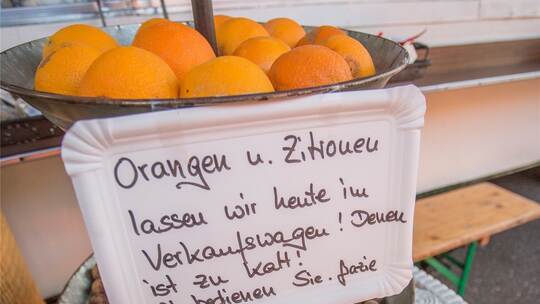 Orangen u. Zitronen
lassen wir heute im
Verkaufswagen! Denen
ist zu kalt!
bedienen Sie